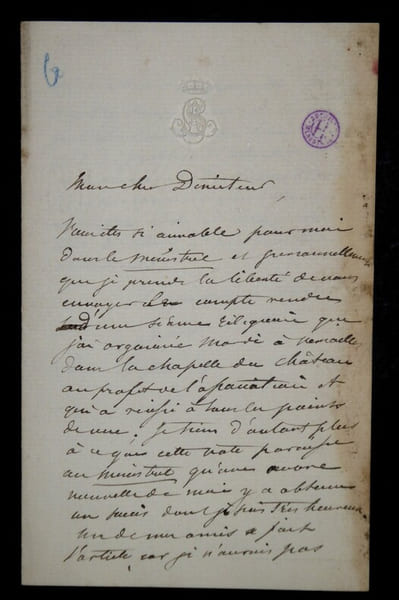 Mon cher Directeur,
Vous êtes si aimable pour moi
dans le ménestrel et personnellement
que je prends la liberté de vous
envoyer le compte rendu
d'une séance religieuse que
j'ai organisée Mardi à Versailles
dans la chapelle du château
au profit de l'
qui a réussi à tous les points
de vue. Je tiens d'autant plus
à ce que cette note paraisse
au ménestrel qu'une œuvre
nouvelle de moi y a obtenu
un succès dont je suis très heureux
un de mes amis a fait
l'article, car je n'aurais pas